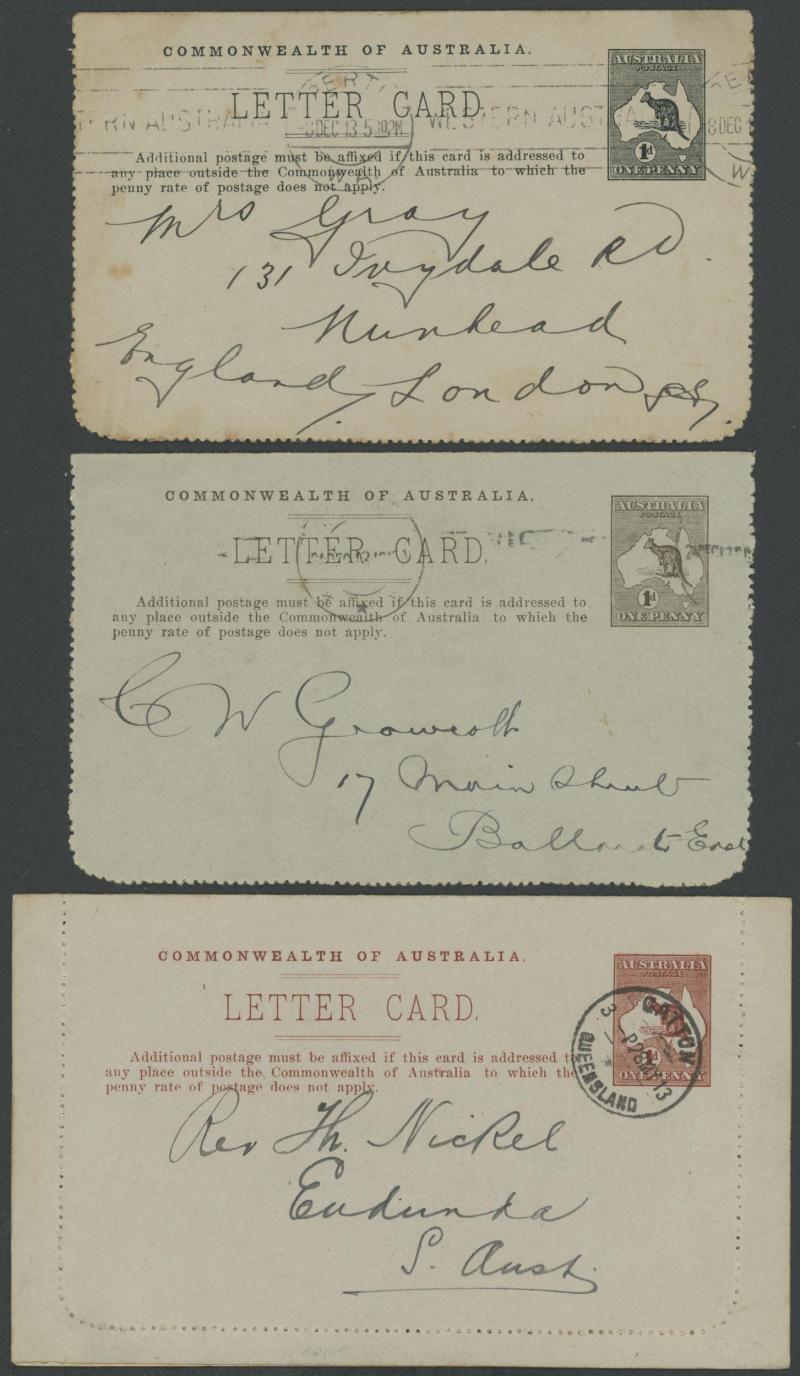 COMMONWEALTH OF AUSTRALIA.
AUSTRALIA
POSTAGE
LETTER CARD.
DEC 13 5 30PM
WESTERN AUSTRALIA
8 DEC 1
1d
ONE PENNY
Additional postage must be affixed if this card is addressed to
any place outside the Commonwealth of Australia to which the
penny rate of postage does not apply.
Mrs Gray
131 Ivydale Rd.
Nunhead
England, London
COMMONWEALTH OF AUSTRALIA.
AUSTRALIA
POSTAGE
LETTER CARD.
1d
ONE PENNY
Additional postage must be affixed if this card is addressed to
any place outside the Commonwealth of Australia to which the
penny rate of postage does not apply.
C W Growcott
17 Main Street
East
COMMONWEALTH OF AUSTRALIA.
AUSTRALIA
POSTAGE
LETTER CARD.
GATTON
QUEENSLAND
ONE PENNY
Additional postage must be affixed if this card is addressed to
any place outside the Commonwealth of Australia to which the
penny rate of postage does not apply.
Rev Th. Nickel
Eudunda
S. Aust.